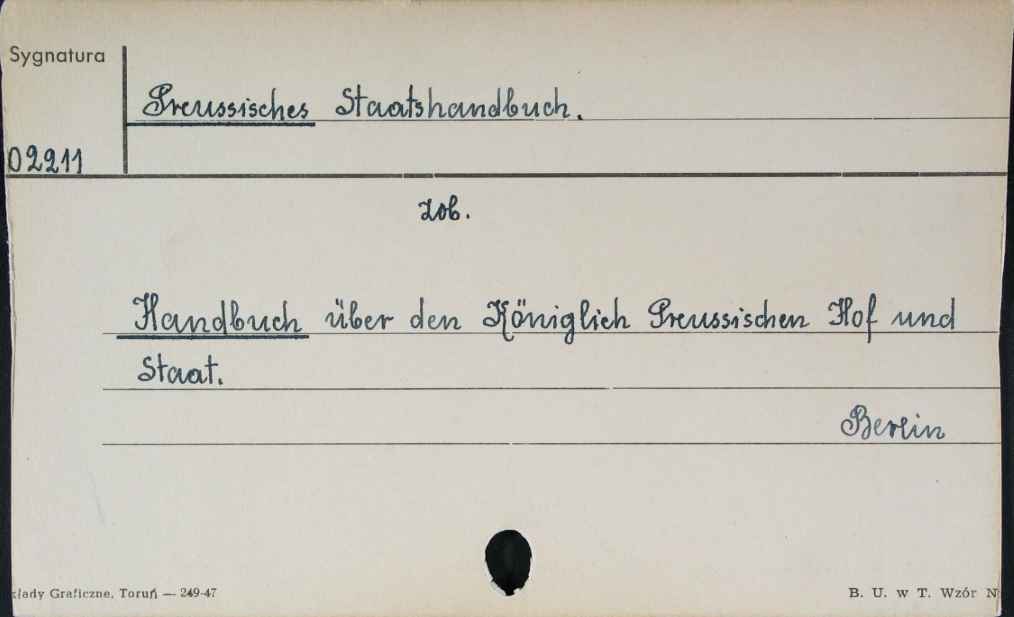 Sygnatura
Preussisches Staatshandbuch.
02211
zob.
Handbuch über den Königlich Preussischen Hof und
Staat.
Berlin
kłady Graficzne, Toruń — 249-47
B. U. w T. Wzór N